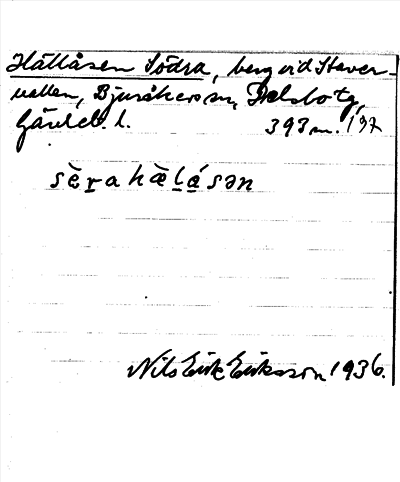 Hällåsen Södra, berg vid Staver-
vallen, Bjuråkers sn,
Gävleb. l. 393 m. 197
sè̱ra hæ̀ḻá̱sən
Nils Erik Eriksson 1936.